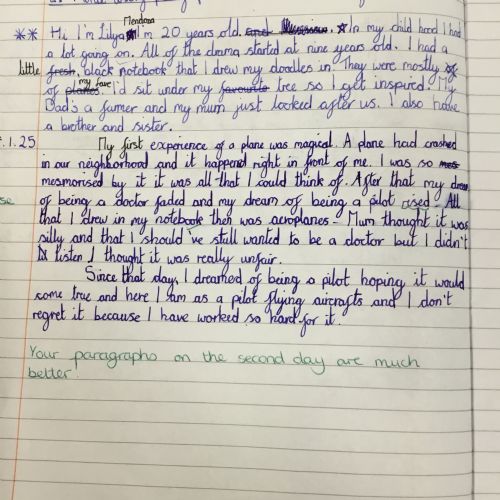 Mendoza
** Hi I'm Lilya I'm 20 years old. In my child hood I had
a lot going on. All of the drama started at nine years old. I had a
little fresh, black notebook that I drew my doodles in. They were mostly of
my fave
of planes. I'd sit under my favourite tree so I get inspired. My
Dad's a farmer and my mum just looked after us. I also have
a brother and sister.
.1.25 My first experience of a plane was magical. A plane had crashed
in our neighborhood and it happend right in front of me. I was so
mesmorised by it it was all that I could think of. After that my dream
of being a doctor faded and my dream of being a pilot rised. All
se
that I drew in my notebook then was aeroplanes. Mum thought it was
silly and that I should've still wanted to be a doctor but I didn't
listen I thought it was really unfair.
Since that day, I dreamed of being a pilot hoping it would
come true and here I am as a pilot flying aircrafts and I don't
regret it because I have worked so hard for it.
Your paragraphs on the second day are much
better.